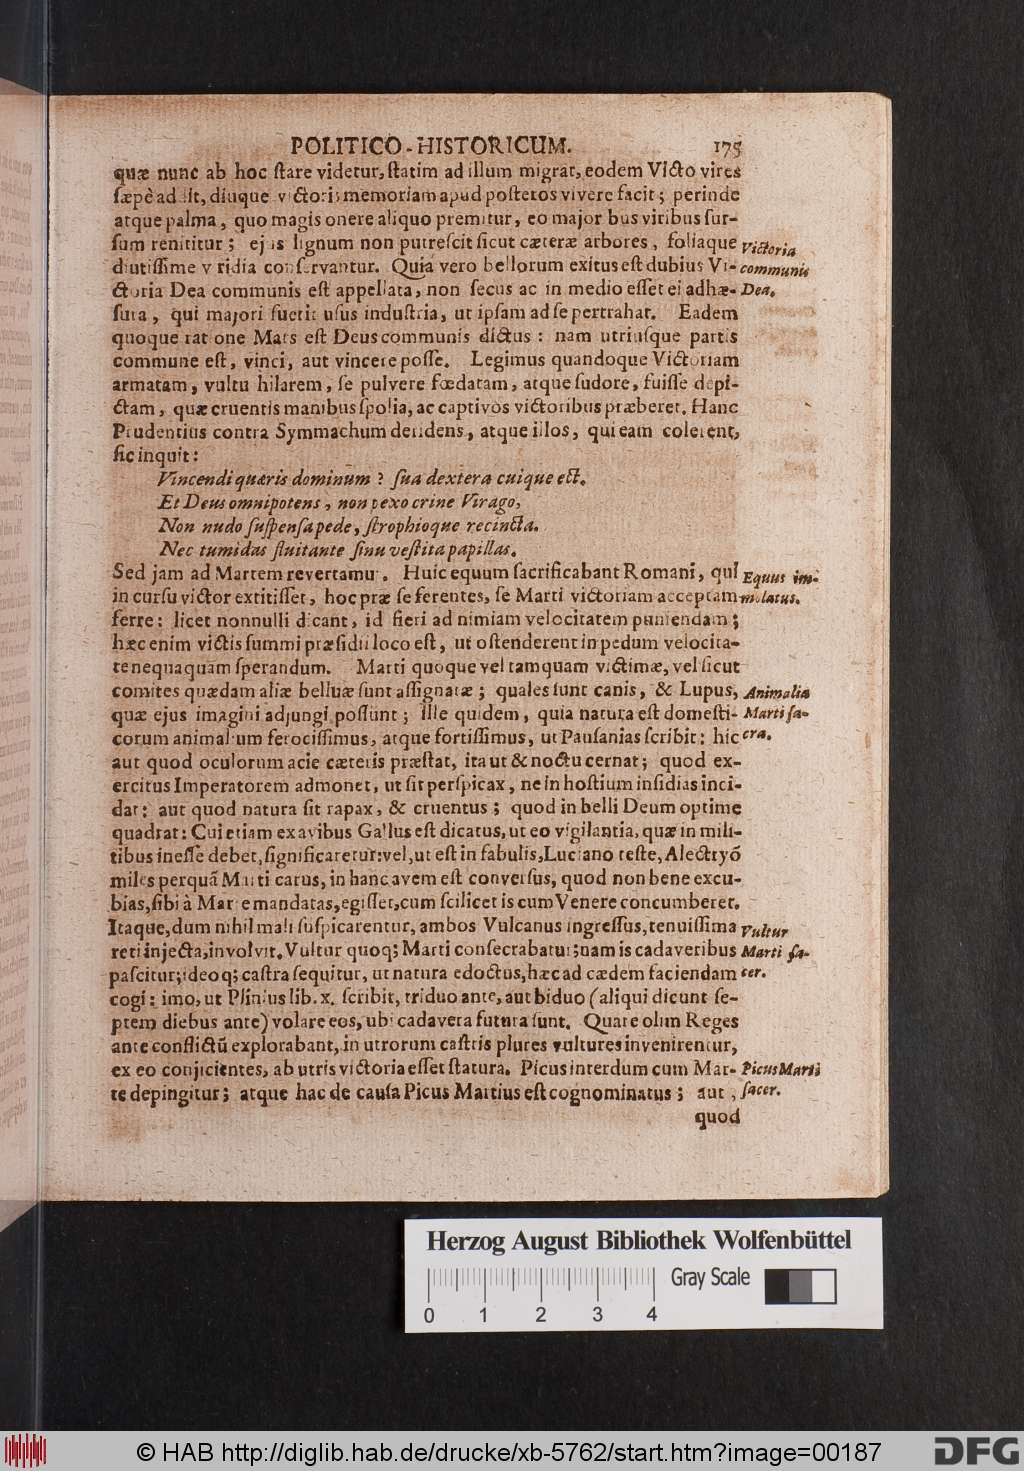 POLITICO-HISTORICUM. 175
quæ nunc ab hoc ſtare videtur, ſtatim ad illum migrat, eodem Victo vires
ſæpè addit, diuque victoris memoriam apud poſteros vivere facit; perinde
atque palma, quo magis onere aliquo premitur, eo majoribus viribus ſur-
ſum renititur; ejus lignum non putreſcit ſicut cæteræ arbores, foliaque
diutiſſime viridia conſervantur. Quia vero bellorum exitus eſt dubius Vi-
ctoria Dea communis eſt appellata, non ſecus ac in medio eſſet ei adhæ-
ſura, qui majori fuerit uſus induſtria, ut ipſam ad ſe pertrahat. Eadem
quoque ratione Mars eſt Deus communis dictus: nam utriuſque partis
commune eſt, vinci, aut vincere poſſe. Legimus quandoque Victoriam
armatam, vultu hilarem, ſe pulvere fœdatam, atque ſudore, fuiſſe depi-
ctam, quæ cruentis manibus ſpolia, ac captivos victoribus præberet. Hanc
Prudentius contra Symmachum deridens, atque illos, qui eam colerent,
ſic inquit:
Vincendi quæris dominum? ſua dextera cuique eſt.
Et Deus omnipotens, non pexo crine Virago,
Non nudo ſuſpenſa pede, ſtrophioque recincta.
Nec tumidas fluitante ſinu veſtita papillas.
Sed jam ad Martem revertamur. Huic equum ſacrificabant Romani, qui
in curſu victor extitiſſet, hoc præ ſe ferentes, ſe Marti victoriam acceptam
ferre: licet nonnulli dicant, id fieri ad nimiam velocitatem puniendam;
hæc enim victis ſummi præſidii loco eſt, ut oſtenderent in pedum velocita-
te nequaquam ſperandum. Marti quoque vel tamquam victimæ, vel ſicut
comites quædam aliæ belluæ ſunt aſſignatæ; quales ſunt canis, & Lupus,
quæ ejus imagini adjungi poſſunt; ille quidem, quia natura eſt domeſti-
corum animalium ferociſſimus, atque fortiſſimus, ut Pauſanias ſcribit: hic
aut quod oculorum acie cæteris præſtat, ita ut & noctu cernat; quod ex-
ercitus Imperatorem admonet, ut ſit perſpicax, ne in hoſtium inſidias inci-
dat: aut quod natura ſit rapax, & cruentus; quod in belli Deum optime
quadrat: Cui etiam ex avibus Gallus eſt dicatus, ut eo vigilantia, quæ in mili-
tibus ineſſe debet, ſignificaretur: vel, ut eſt in fabulis, Luciano teſte, Alectryõ
miles perquã Marti carus, in hanc avem eſt converſus, quod non bene excu-
bias, ſibi à Marte mandatas, egiſſet, cum ſcilicet is cum Venere concumberet.
Itaque, dum nihil mali ſuſpicarentur, ambos Vulcanus ingreſſus, tenuiſſima
reti injecta, involvit. Vultur quoq; Marti conſecrabatur; nam is cadaveribus
paſcitur; ideoq; caſtra ſequitur, ut natura edoctus, hæc ad cædem faciendam
cogi: imo, ut Plinius lib. x. ſcribit, triduo ante, aut biduo (aliqui dicunt ſe-
ptem diebus ante) volare eos, ubi cadavera futura ſunt. Quare olim Reges
ante conflictũ explorabant, in utrorum caſtris plures vultures invenirentur,
ex eo conjicientes, ab utris victoria eſſet ſtatura. Picus interdum cum Mar-
te depingitur; atque hac de cauſa Picus Martius eſt cognominatus; aut,
quod
Victoria
communis
Dea.
Equus im-
molatus.
Animalia
Marti ſa-
cra.
Vultur
Marti ſa-
cer.
Picus Marti
ſacer.
Herzog August Bibliothek Wolfenbüttel
Gray Scale
0 1 2 3 4
© HAB http://diglib.hab.de/drucke/xb-5762/start.htm?image=00187
DFG